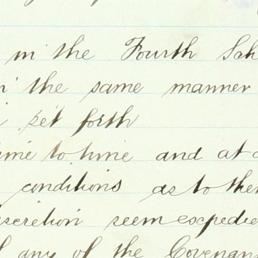 in the Fourth Sch
the same manner
set forth
time to time and at
conditions as to the
discretion seem expedie
any of the Covenan